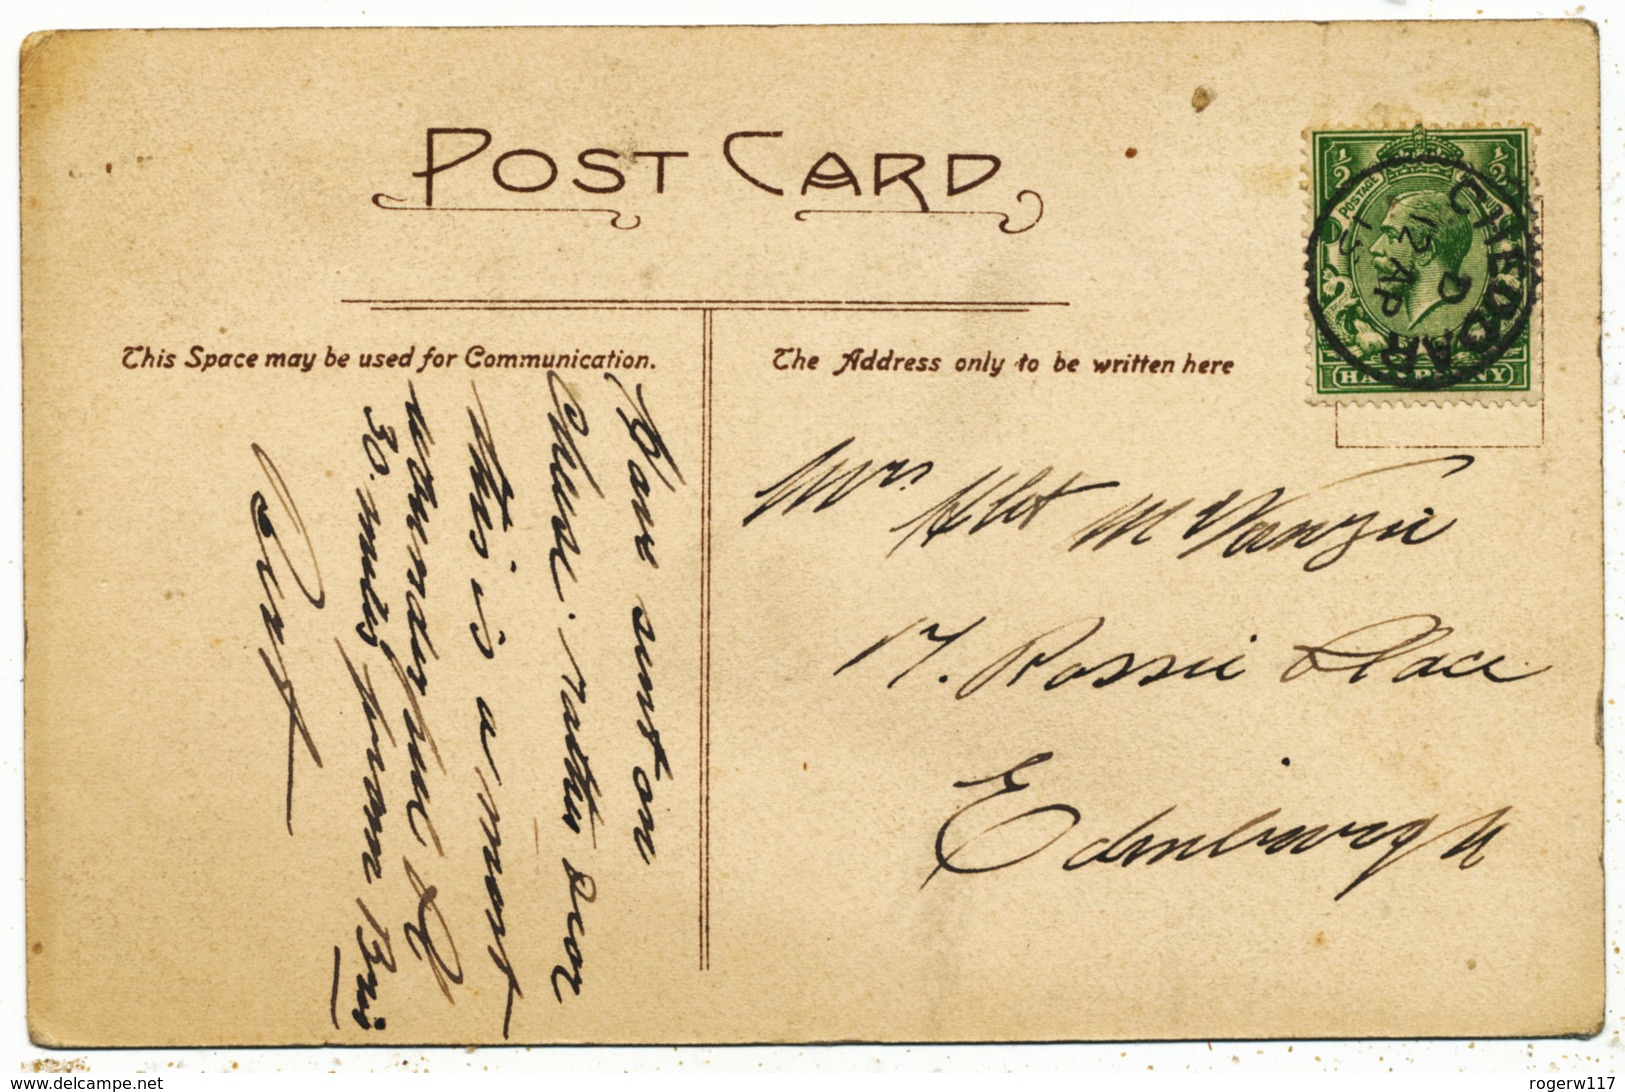 POST CARD
This Space may be used for Communication.
The Address only to be written here
½ ½
POSTAGE
HALFPENNY
CHEDDAR
D
12 AP
Have sent on
Cheese. rather dear
this is a most
wonderful
30. miles from Bris
Mrs
17. Rossie Place
Edinburgh
delcampe.net
rogerw117